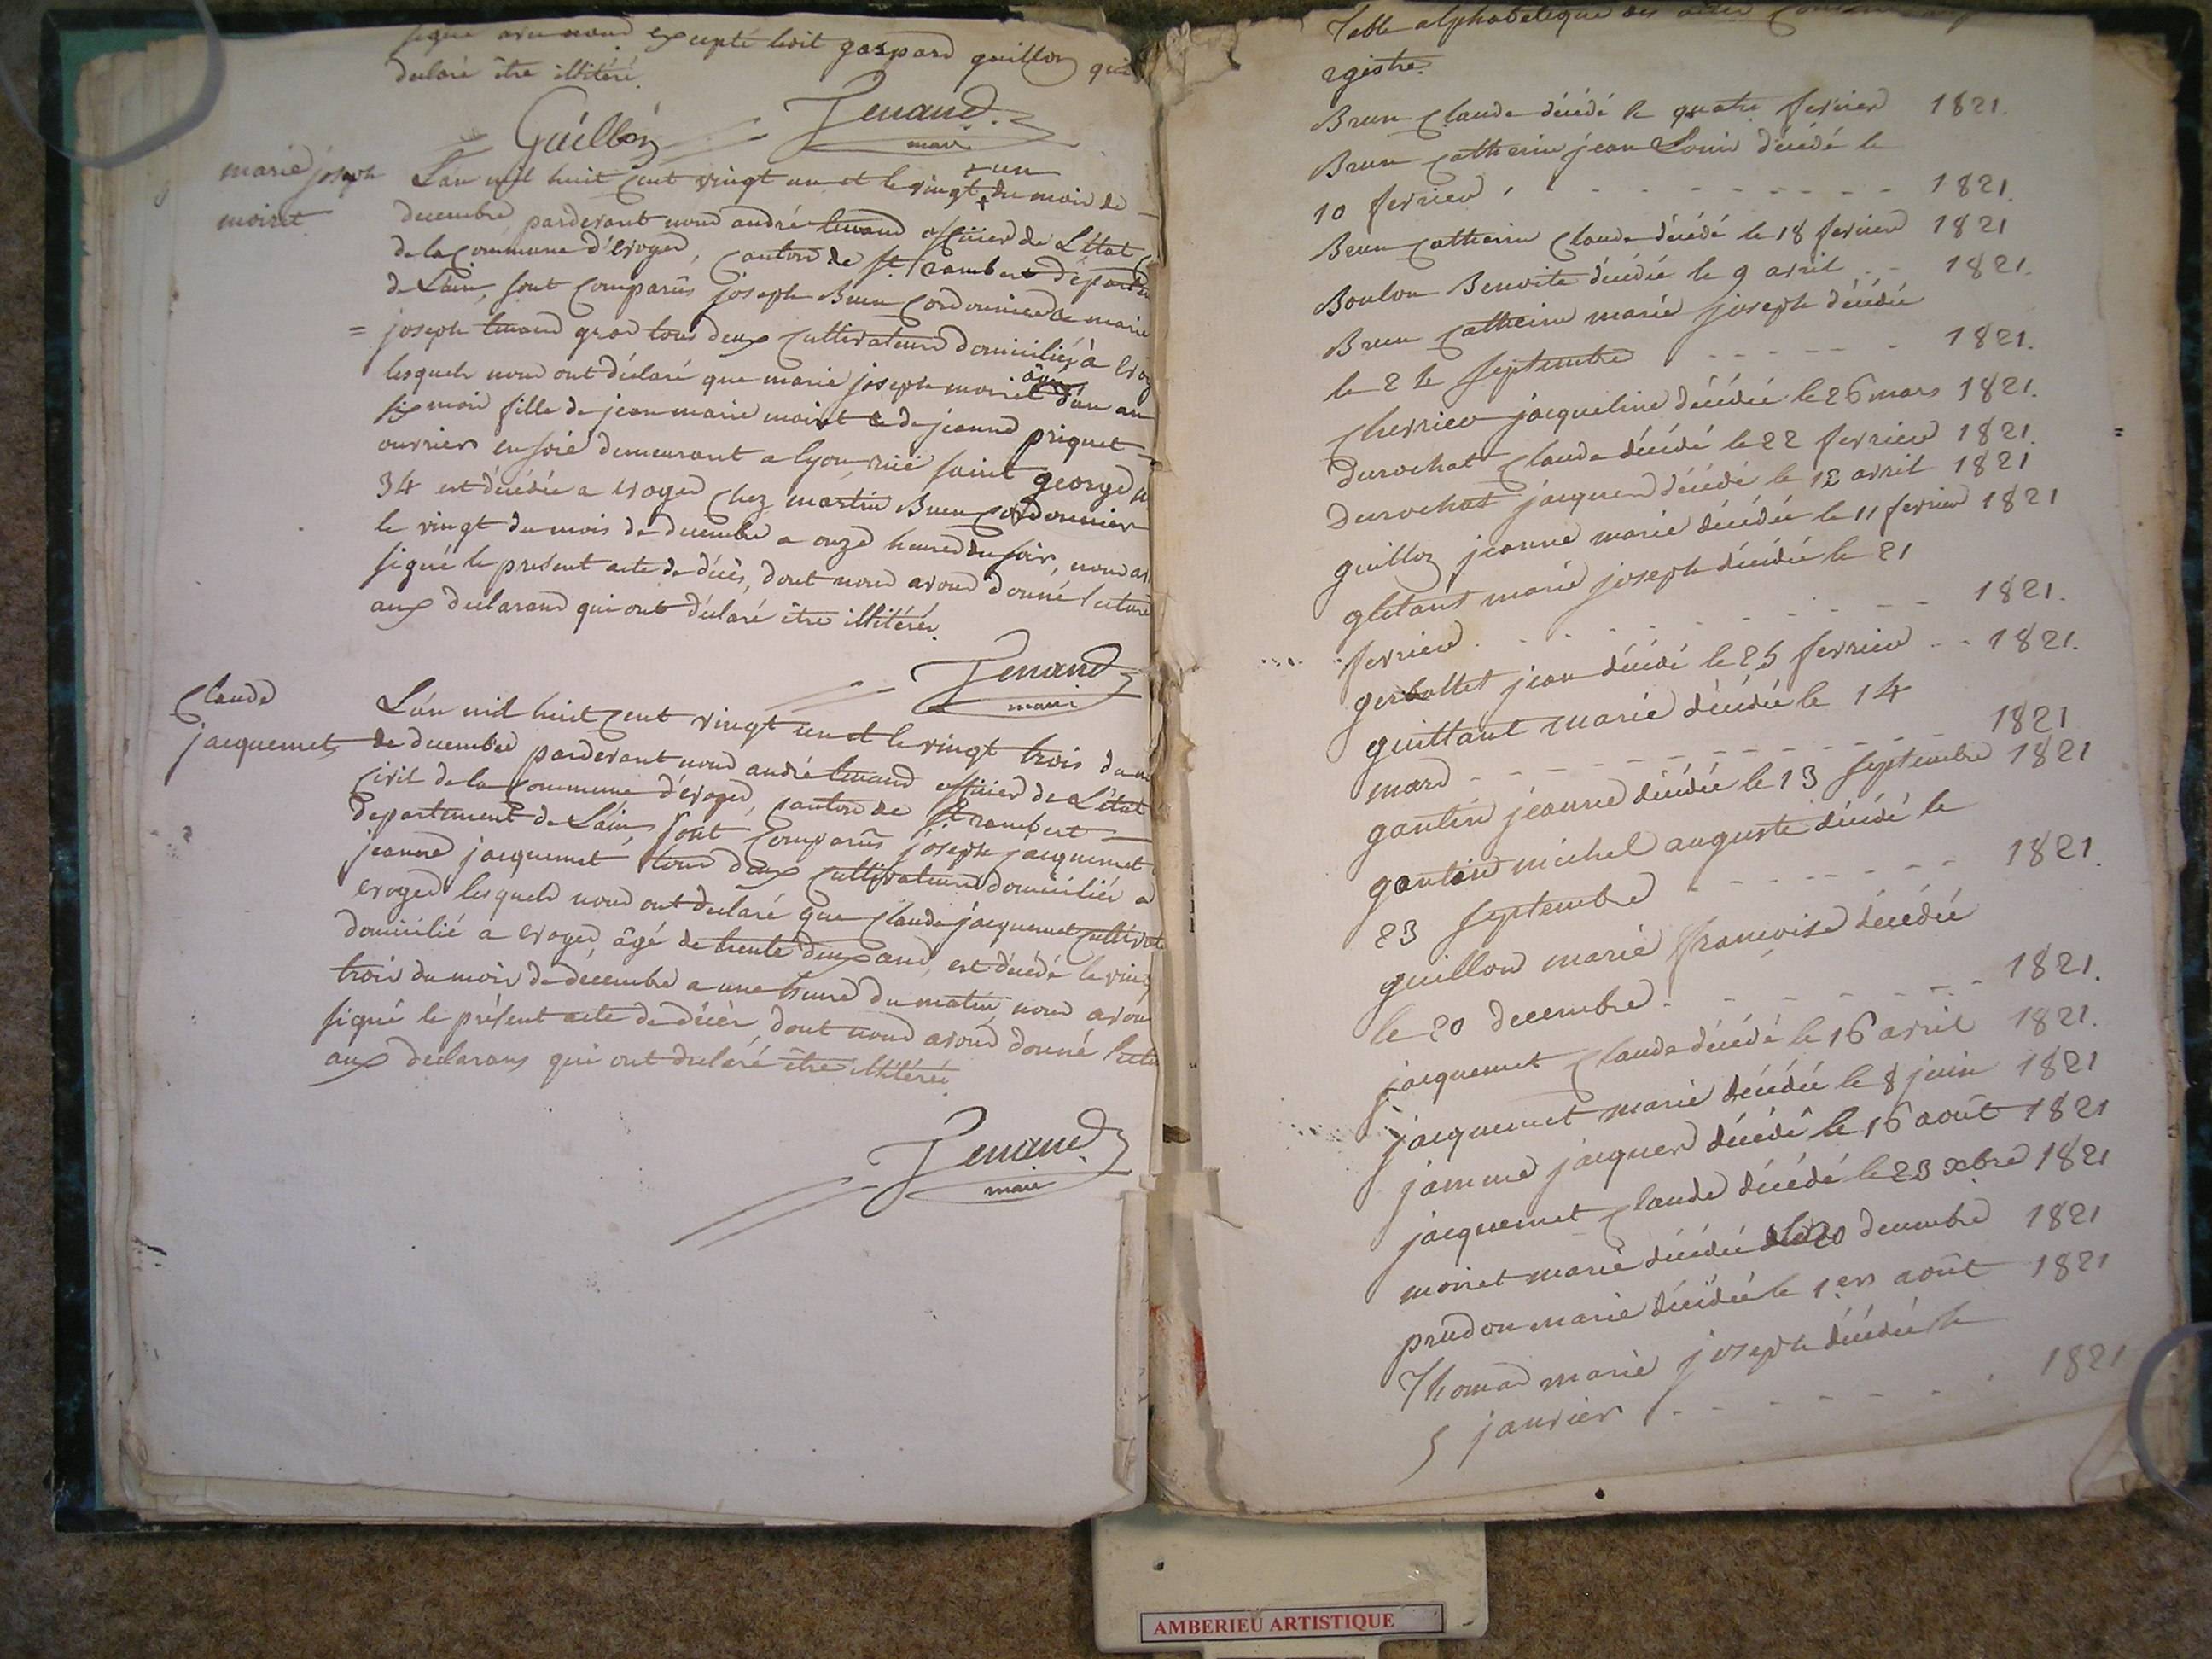 signé avec nous excepté ledit gaspard guillon qui
declaré être illitéré.
Guillon Tenand
maire
marie joseph
moiret
L'an mil huit cent vingt un et le vingt + du mois de
+ un
decembre, pardevant nous andré tenand officier de L'état
de la Commune d'évoges, canton de st rambert départ
de Lain, sont comparus joseph Brun cordonnier de marie
= joseph tenand gros tous deux cultivateurs domiciliés à évog
lesquels nous ont déclaré que marie joseph moiret âgée d'un an
six mois fille de jean marie moiret & de jeanne priquet
ouvriers en soie demeurant a lyon rüe saint george n
34 est décédée a evoges chez martin Brun cordonnier
le vingt du mois de decembre a onze heures du soir, nous av
signé le present acte de décès, dont nous avons donné lecture
aux declarans qui ont déclaré être illitérés.
Tenand
maire
Claude
jacquemet
L'an mil huit cent vingt un et le vingt trois du m
de decembre pardevant nous andré tenand officier de L'état
civil de la commune d'évoges, canton de st rambert
departement de Lain, sont comparus joseph jacquemet
jeanne jacquemet, tous deux cultivateurs domiciliés a
evoges lesquels nous ont declaré que Claude jacquemet cultivat
domicilié a evoges, âgé de trente deux ans, est décédé le ving
trois du mois de decembre a une heure du matin, nous avon
signé le présent acte de décès, dont nous avons donné lectu
aux declarans qui ont declaré être illitérés
Tenand
maire
Table alphabetique des actes
egistre.
Brun Claude décédé le quatre fevrier 1821.
Brun Catherin jean Louis décédé le
10 fevrier 1821.
Brun Catherin Claude décédé le 18 fevrier 1821
Boulon Benoite décédée le 9 avril 1821.
Brun Catherine marie joseph décédée
le 21 septembre 1821.
Cherrier jacqueline décédée le 26 mars 1821.
Durochat Claude décédé le 22 fevrier 1821.
Durochat jacques décédé le 12 avril 1821
guillon jeanne marie décédée le 11 fevrier 1821
gletant marie joseph décédée le 21
fevrier 1821.
gerbollet jean décédé le 25 fevrier 1821.
guittant marie décédée le 14
mars 1821
gantin jeanne décédée le 13 septembre 1821
gantin michel auguste décédé le
23 septembre 1821.
guillon marie françoise décédée
le 20 decembre 1821.
jacquemet Claude décédé le 16 avril 1821.
jacquemet marie décédée le 8 juin 1821
jamme jacques décédé le 16 août 1821
jacquemet Claude décédé le 23 xbre 1821
moiret marie décédée le 20 decembre 1821
prudon marie décédée le 1ers août 1821
Thomas marie joseph décédée le
5 janvier 1821
AMBERIEU ARTISTIQUE